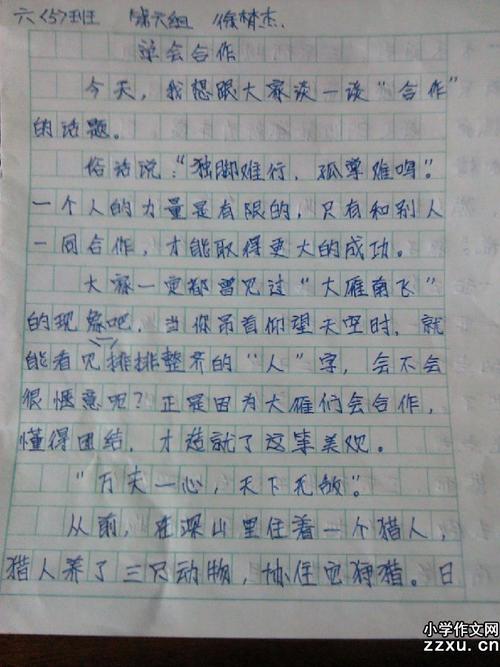 六(5)班 第六组 徐梦杰
学会合作
今天，我想跟大家谈一谈“合作”
的话题。
俗话说：“独脚难行，孤掌难鸣”。
一个人的力量是有限的，只有和别人
一同合作，才能取得更大的成功。
大家一定都曾见过“大雁南飞”
的现象吧，当你昂首仰望天空时，就
能看见排排整齐的“人”字，会不会
很惬意呢？正是因为大雁们会合作，
懂得团结，才造就了这番美观。
“万夫一心，天下无敌”。
从前，在深山里住着一个猎人，
猎人养了三只动物，协住它狩猎。日
小学作文网
zzxu.cn